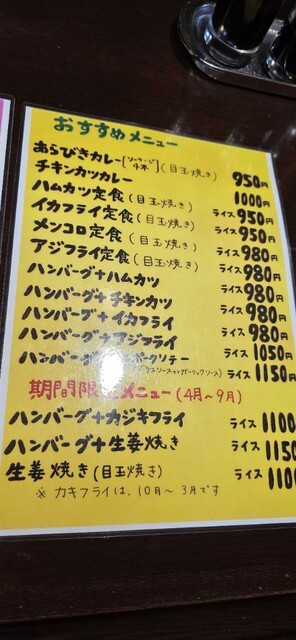 おすすめメニュー
あらびきカレー[ソーセージ4本](目玉焼き) 950円
チキンカツカレー 1000円
ハムカツ定食(目玉焼き) ライス950円
イカフライ定食(目玉焼き) ライス950円
メンコロ定食(目玉焼き) ライス980円
アジフライ定食(目玉焼き) ライス980円
ハンバーグ+ハムカツ ライス980円
ハンバーグ+チキンカツ ライス980円
ハンバーグ+イカフライ ライス980円
ハンバーグ+アジフライ ライス1050円
ハンバーグ ークソテー ライス1150円
ソースorガーリックソース)
期間限 メニュー(4月~9月)
ハンバーグ+カジキフライ ライス1100
ハンバーグ+生姜焼き ライス1150
生姜焼き(目玉焼き) ライス1100
※ カキフライは、10月~3月です